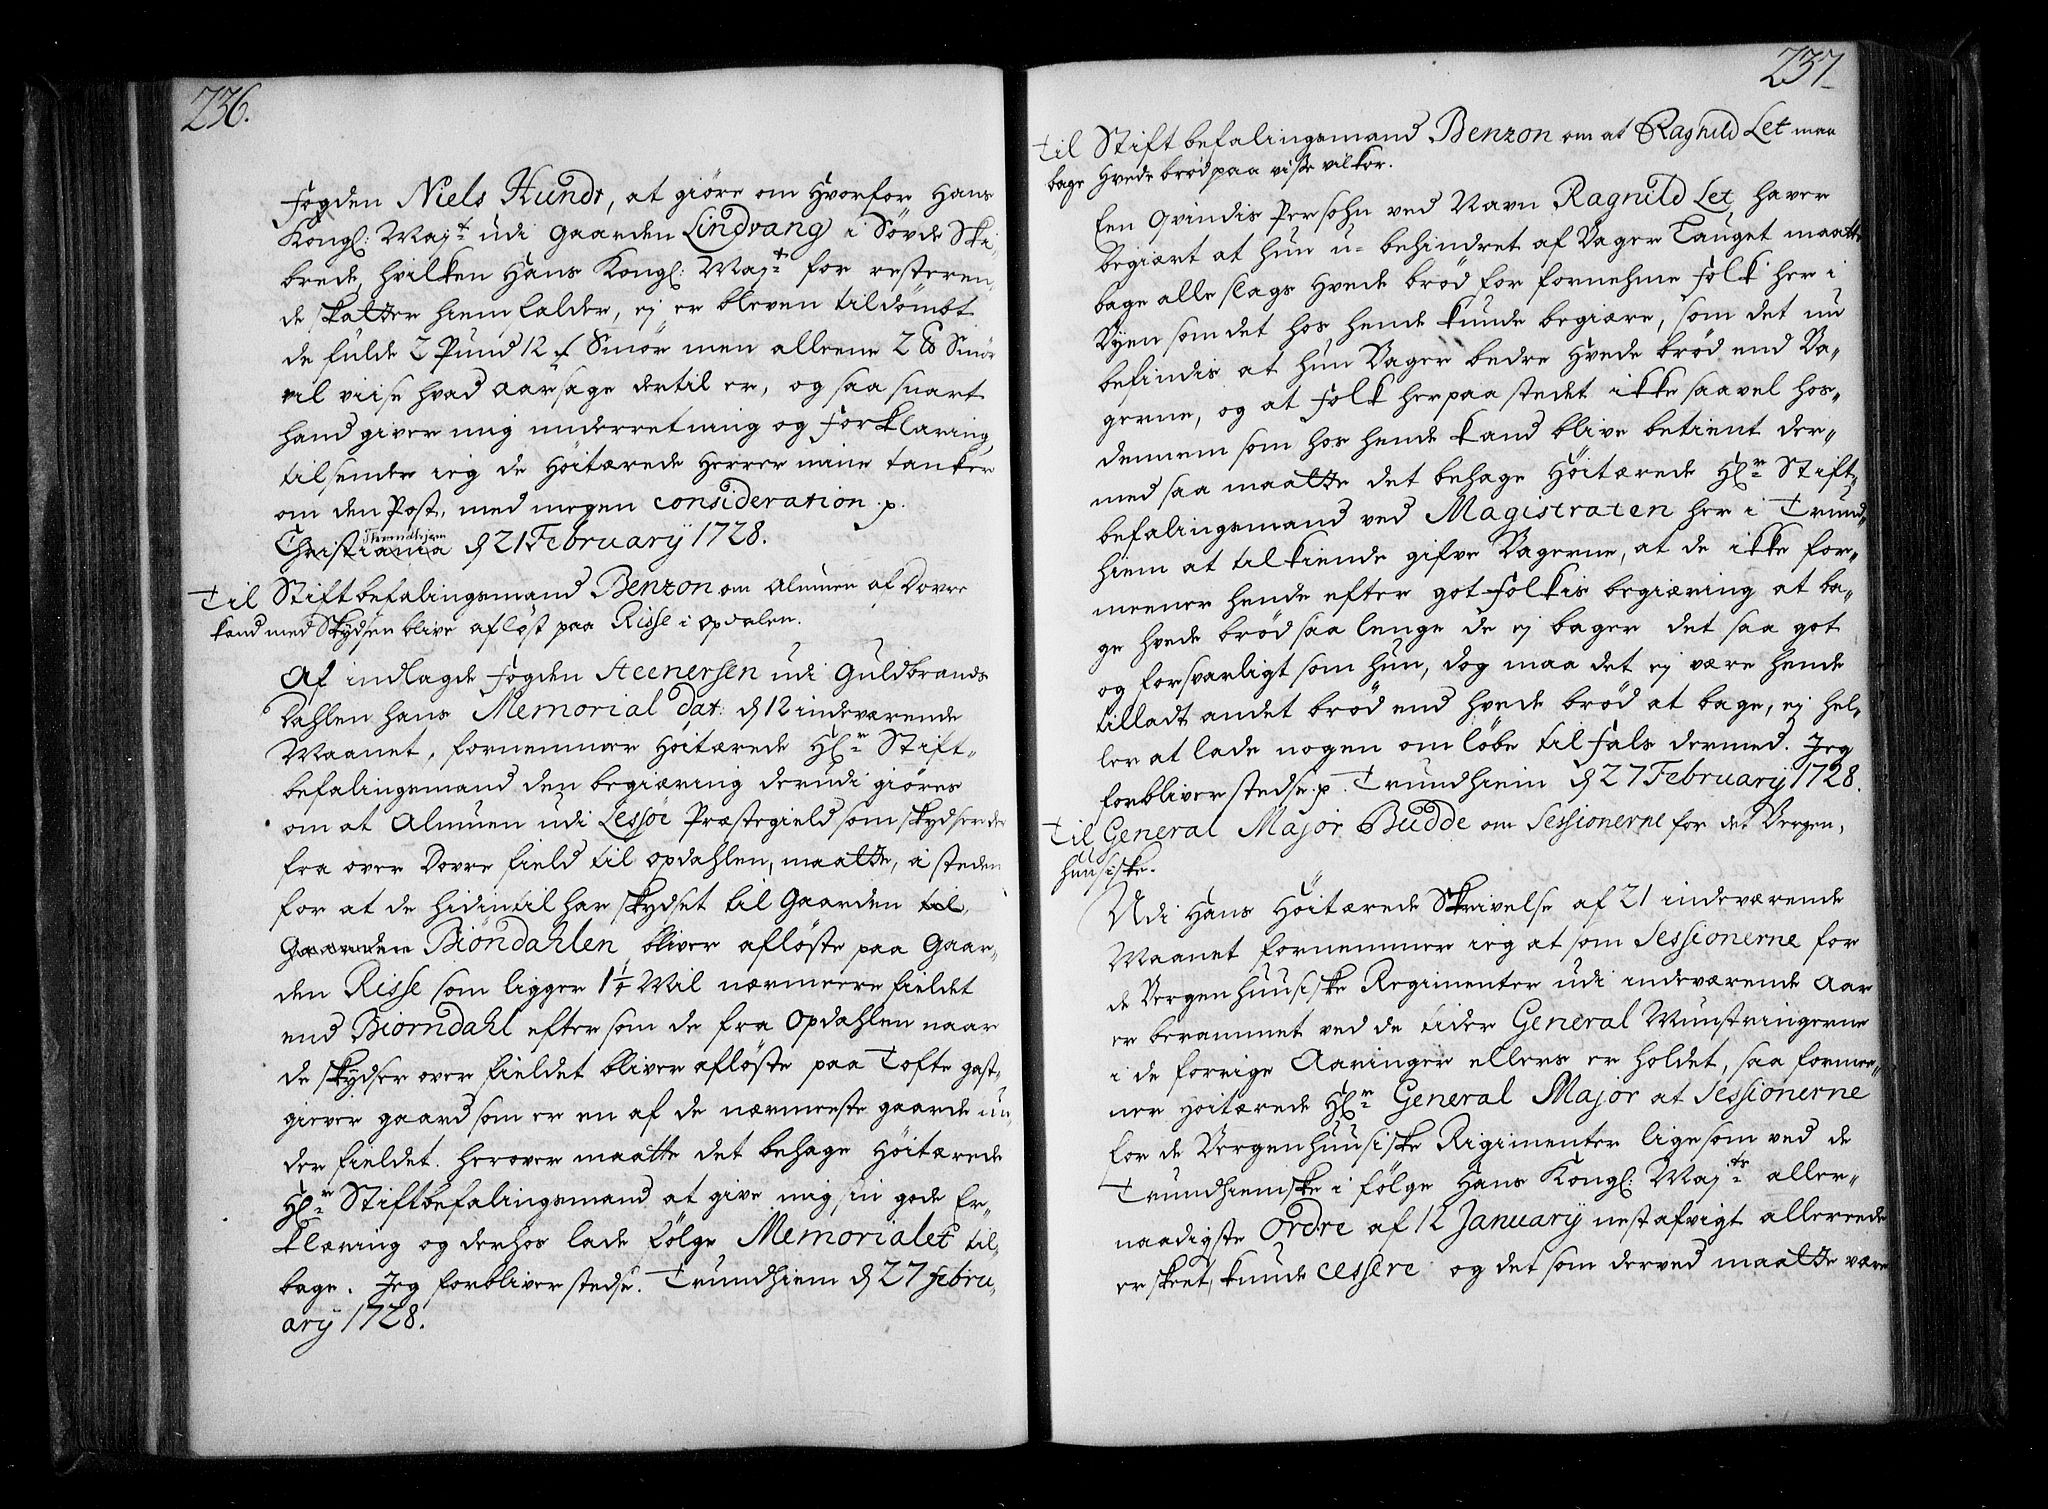 236.
Fogden Niels Hundt, at giöre om Hvorfor Hans
Kongl: Maj:t udi Gaarden Lindvang i Sövde Ski-
brede, hvilken Hans Kongl: Maj:t for resteren-
de skatter hiemfalder, ej er bleven tildömbt
de fulde 2 Pund 12 Smör men alleene 2 Smör
vil viise hvad aarsage dertil er, og saa snart
hand giver mig underretning og Forklaring,
tilsender ieg de Höitærede Herrer mine tanker
om den Post, med megen consideration .p.
Thrundhjem
Christiania d 21 February 1728.
Til Stiftbefalingsmand Benzon om Almuen af Dovre
kand med Skydsen blive aflöst paa Risse i Opdalen.
Af indlagde Fogden Steenersen udi Guldbrands
Dahlen hans Memorial dat: d 12 indeværende
Maanet, fornemmer Höitærede Hr: Stift-
befalingsmand den begiæring derudi giöres
om at Almuen udi Lessöe Præstegield som skydser der
fra over Dovre field til Opdahlen, maatte, i steden
for at de hidintil har skydset til Gaarden til
Gaarden Biöndahlen bliver aflöste paa Gaar-
den Risse som ligger 1 1/4 Mil nærmere fieldet
end Biörndahl efter som de fra Opdahlen naar
de skydser over fieldet bliver aflöste paa Tofte gast-
giever gaard som er en af de nærmeste gaarde un-
der fieldet. herover maatte det behage Höitærede
Hr: Stiftbefalingsmand at give mig sin gode Er-
klæring og derhos lade fölge Memorialet til-
bage. Jeg forbliver stedse. Trundhiem d 27 Febru-
ary 1728.
237
Til Stiftbefalingsmand Benzon om at Ragnild Let maa
bage Hvede brød paa visse vilkor.
Een Qvindis Persohn ved Navn Ragnild Let, haver
begiært at hun u-behindret af Bager Lauget maatte
bage alle slags Hvede brød for fornehme Folk her i
Byen som det hos hende kunde begiære, som det nu
befindis at hun Bager bedre Hvede brød end Ba-
gerne, og at Folk her paa stedet ikke saavel hos
dennem som hos hende kand blive betient der-
med saa maatte det behage Höitærede Hr: Stift-
befalingsmand ved Magistraten her i Trund-
hiem at tilkiende gifve Bagerne, at de ikke for-
meener hende efter got folkis begiæring at ba-
ge hvede brød saa lenge de ej bager det saa got
og forsvarligt som hun, dog maa det ej være hende
tilladt andet brød end hvede brød at bage, ej hel-
ler at lade nogen omløbe til fals dermed. Jeg
forbliver stedse .p. Trundhiem d 27 February 1728.
Til General Major Budde om Sessionerne for det Bergen-
huusiske.
Udi Hans Höitærede Skrivelse af 21 indeværende
Maanet fornemmer ieg at som Sessionerne for
de Bergenhuusiske Regimenter udi indeværende Aar
er berammet ved de tider General Munstringerne
i de forrige Aaringer ellers er holdet, saa formee-
ner Höitærede Hr: General Major at Sessionerne
for de Bergenhuusiske Rigimenter lige som ved de
Trundhiemske i fölge Hans Kongl: Maj:ts aller-
naadigste Ordre af 12 January nest afvigt allerede
er skeet, kunde cessere og det som derved maatte være